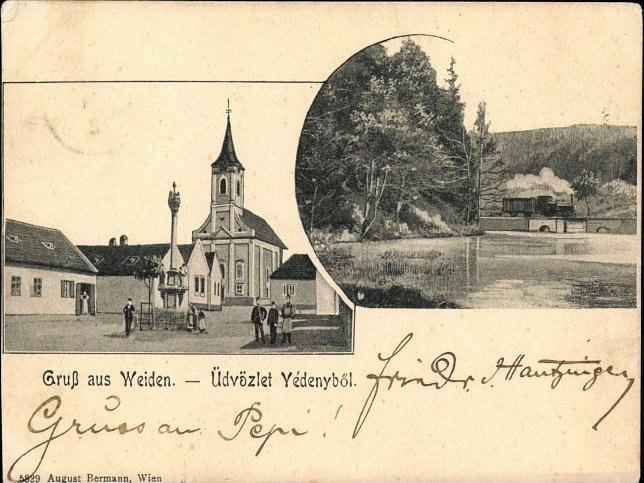 Gruß aus Weiden. — Üdvözlet Védenyből.
Gruss an Pepi!
5829 August Bermann, Wien